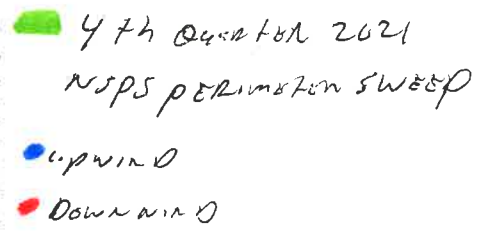 4th Quarter 2021
NSPS PERIMETER SWEEP
UPWIND
DOWNWIND